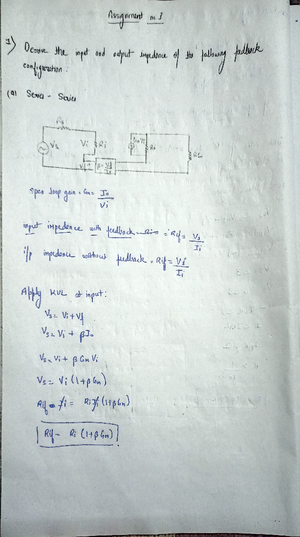 Assignment no 3
1) Derive the input and output impedance of the following feedback
configuration.
(a) Series - Series
Rs
Vs
Vi
Ri
Vf
Ro
open loop gain = Gm = Io/Vi
input impedance with feedback = Rif = Vs/Ii
i/p impedance without feedback = Rif = Vi/Ii
Apply KVL at input:
Vs = Vi + Vf
Vs = Vi + βIo
Vs = Vi + βGm Vi
Vs = Vi (1+βGm)
(1+βGm)
Rif = Ri (1+βGm)